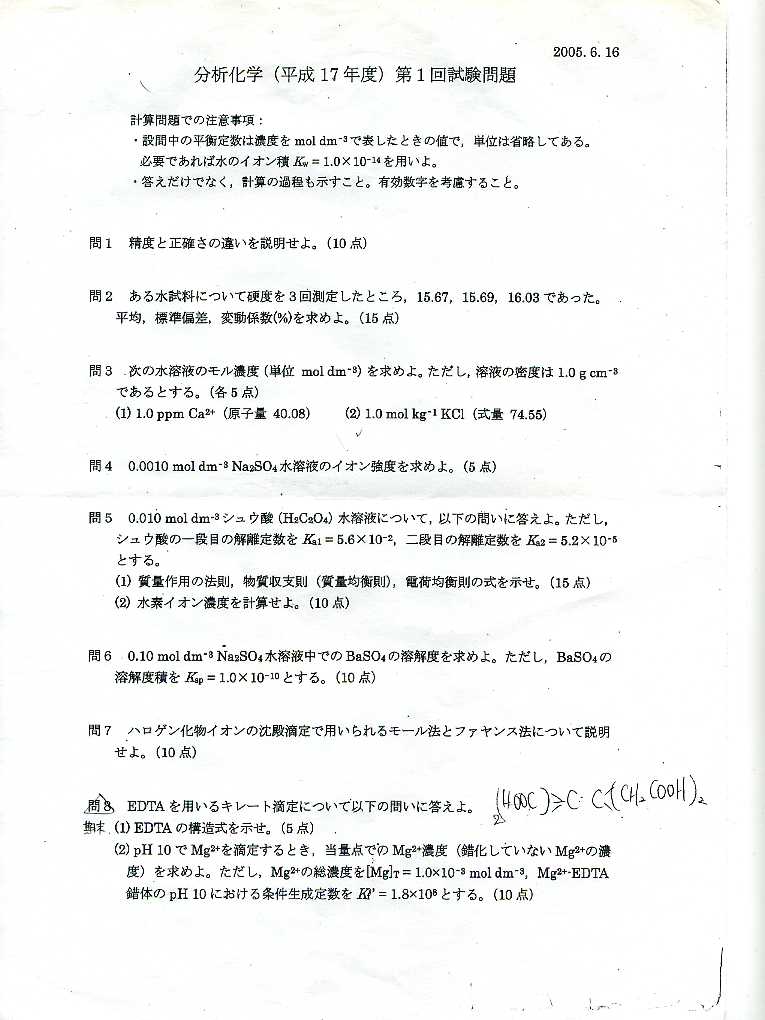 2005. 6. 16
分析化学（平成 17 年度）第 1 回試験問題
計算問題での注意事項：
・設問中の平衡定数は濃度を mol dm⁻³で表したときの値で，単位は省略してある。
必要であれば水のイオン積 Kw = 1.0×10⁻¹⁴ を用いよ。
・答えだけでなく，計算の過程も示すこと。有効数字を考慮すること。
問 1 精度と正確さの違いを説明せよ。(10 点)
問 2 ある水試料について硬度を 3 回測定したところ，15.67，15.69，16.03 であった。
平均，標準偏差，変動係数(%)を求めよ。(15 点)
問 3 次の水溶液のモル濃度（単位 mol dm⁻³）を求めよ。ただし，溶液の密度は 1.0 g cm⁻³
であるとする。(各 5 点)
(1) 1.0 ppm Ca²⁺（原子量 40.08） (2) 1.0 mol kg⁻¹ KCl（式量 74.55）
問 4 0.0010 mol dm⁻³ Na₂SO₄ 水溶液のイオン強度を求めよ。(5 点)
問 5 0.010 mol dm⁻³ シュウ酸（H₂C₂O₄）水溶液について，以下の問いに答えよ。ただし，
シュウ酸の一段目の解離定数を Ka1 = 5.6×10⁻²，二段目の解離定数を Ka2 = 5.2×10⁻⁵
とする。
(1) 質量作用の法則，物質収支則（質量均衡則），電荷均衡則の式を示せ。(15 点)
(2) 水素イオン濃度を計算せよ。(10 点)
問 6 0.10 mol dm⁻³ Na₂SO₄ 水溶液中での BaSO₄ の溶解度を求めよ。ただし，BaSO₄ の
溶解度積を Ksp = 1.0×10⁻¹⁰ とする。(10 点)
問 7 ハロゲン化物イオンの沈殿滴定で用いられるモール法とファヤンス法について説明
せよ。(10 点)
問 8 EDTA を用いるキレート滴定について以下の問いに答えよ。
期末 (1) EDTA の構造式を示せ。(5 点)
(2) pH 10 で Mg²⁺を滴定するとき，当量点での Mg²⁺濃度（錯化していない Mg²⁺の濃
度）を求めよ。ただし，Mg²⁺の総濃度を[Mg]T = 1.0×10⁻³ mol dm⁻³，Mg²⁺-EDTA
錯体の pH 10 における条件生成定数を Kf' = 1.8×10⁸ とする。(10 点)